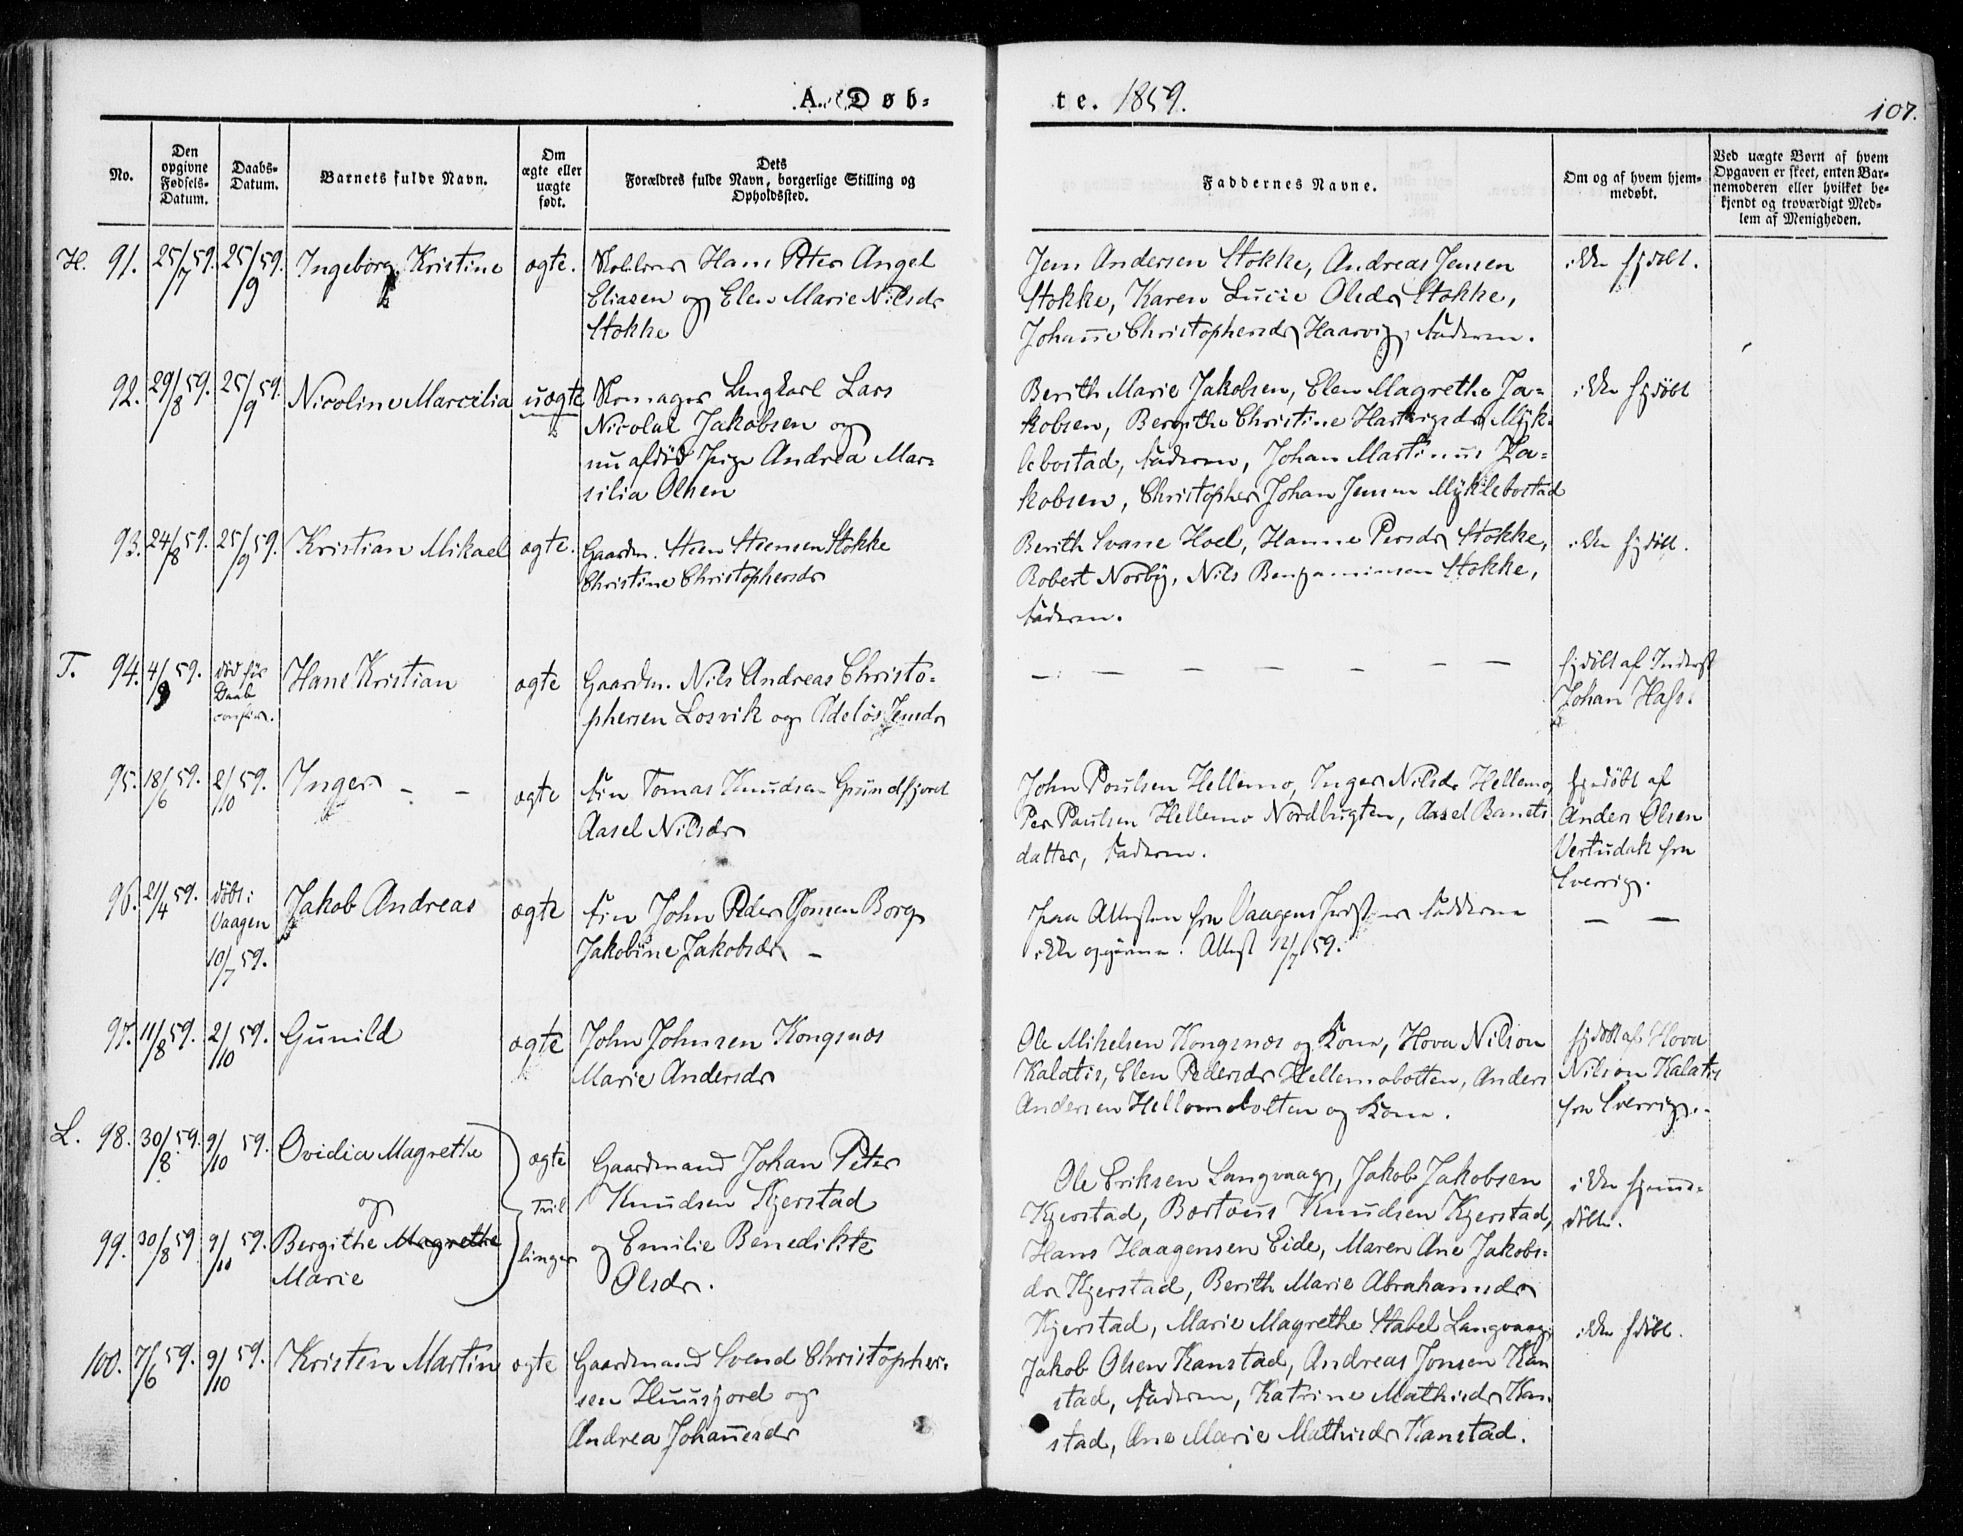 A. Døb-
te. 1859.
107.
No.
Den opgivne Fødsels-Datum.
Daabs-Datum.
Barnets fulde Navn.
Om ægte eller uægte født.
Dets Forældres fulde Navn, borgerlige Stilling og Opholdssted.
Faddernes Navne.
Om og af hvem hjem-medøbt.
Ved uægte Børn af hvem Opgaven er skeet, enten Bar-nemoderen eller hvilket be-kjendt og troværdigt Med-lem af Menigheden.
H. 91. 25/7 59. 25/9 59. Ingeborg Kristine ægte. Hans Peter Angel
Eliasen og Elen Marie Nilsdr
Stokke
Jens Andersen Stokke, Andreas Jensen
Stokke, Karen Lucie Olsdr Stokke,
Johanne Christophersdr Haarvig, Faderen.
ikke hjdøbt.
92. 29/8 59. 25/9 59. Nicoline Marcilia uægte Skomager Ungkarl Lars
Nicolai Jakobsen og
nu afdød Pige Andrea Mar-
silia Olsen
Berith Marie Jakobsen, Elen Magrethe Ja-
kobsen, Bergithe Christine Hartvigsdr Myk-
lebostad, Faderen, Johan Martinus Ja-
kobsen, Christopher Johan Jensen Myklebostad
ikke hjdøbt
93. 24/8 59. 25/9 59. Kristian Mikael ægte. Gaardm. Steen Steensen Stokke
Christine Christophersdr
Berith Svane Hoel, Hanne Persdr Stokke,
Robert Norby, Nils Benjaminsen Stokke,
Faderen.
ikke hjdøbt.
T. 94. 4/9 59. død før
Daab
Hans Kristian ægte Gaardm. Nils Andreas Christo-
phersen Losvik og Adelös Jensdr
— — — — — — —
hjdøbt af Inderst
Johan Hass.
95. 18/6 59. 2/10 59. Inger — — ægte Fin Tomas Knudsen Grundfjord
Aasel Nilsdr
John Poulsen Hellemo, Inger Nilsdr Hellemo,
Per Paulsen Hellemo Nordbugten, Aasel Banets
datter, Faderen.
hjdøbt af
Anders Olsen
Vertudak fra
Sverrig.
96. 21/4 59. døbt i
Vaagen
10/7 59.
Jakob Andreas ægte Fin John Peder Jonsen Borg
Jakobine Jakobsdr —
paa Attesten fra Vaagens Præst er Fadderne
ikke opgivne. Attest 12/7 59.
— —
97. 11/8 59. 2/10 59. Gunild ægte John Johnsen Kongsnæs
Marie Andersdr
Ole Mikelsen Kongsnæs og Kone, Hova Nilson
Kalatis, Elen Pedersdr Hellemobotten, Anders
Andersen Hellomobotten og Kone.
hjdøbt af Hova
Nilson Kalatis
fra Sverrig.
L. 98. 30/8 59. 9/10 59. Ovidia Magrethe
og
99. 30/8 59 9/10 59. Bergithe Magrethe
Marie
ægte
Tvil
linger
Gaardmand Johan Peter
Knudsen Kjerstad
og Emilie Benedikte
Olsdr.
Ole Eriksen Langvaag, Jakob Jakobsen
Kjerstad, Bortæus Knudsen Kjerstad,
Hans Haagensen Eide, Maren Ane Jakobs-
dr Kjerstad, Berith Marie Abrahamsdr
Kjerstad, Marie Magrethe Stabel Langvaag.
ikke hjemme-
døbt.
100. 7/6 59. 9/10 59. Kristen Martin ægte Gaardmand Svend Christopher-
sen Huusjord og
Andrea Johannesdr
Jakob Olsen Kanstad, Andreas Jonsen Kan
stad, Faderen, Katrine Mathisdr Kan-
stad, Ane Marie Mathisdr Kanstad.
ikke hjdøbt.